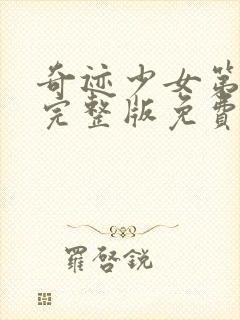 奇迹少女第
完整版免費
羅啓銳